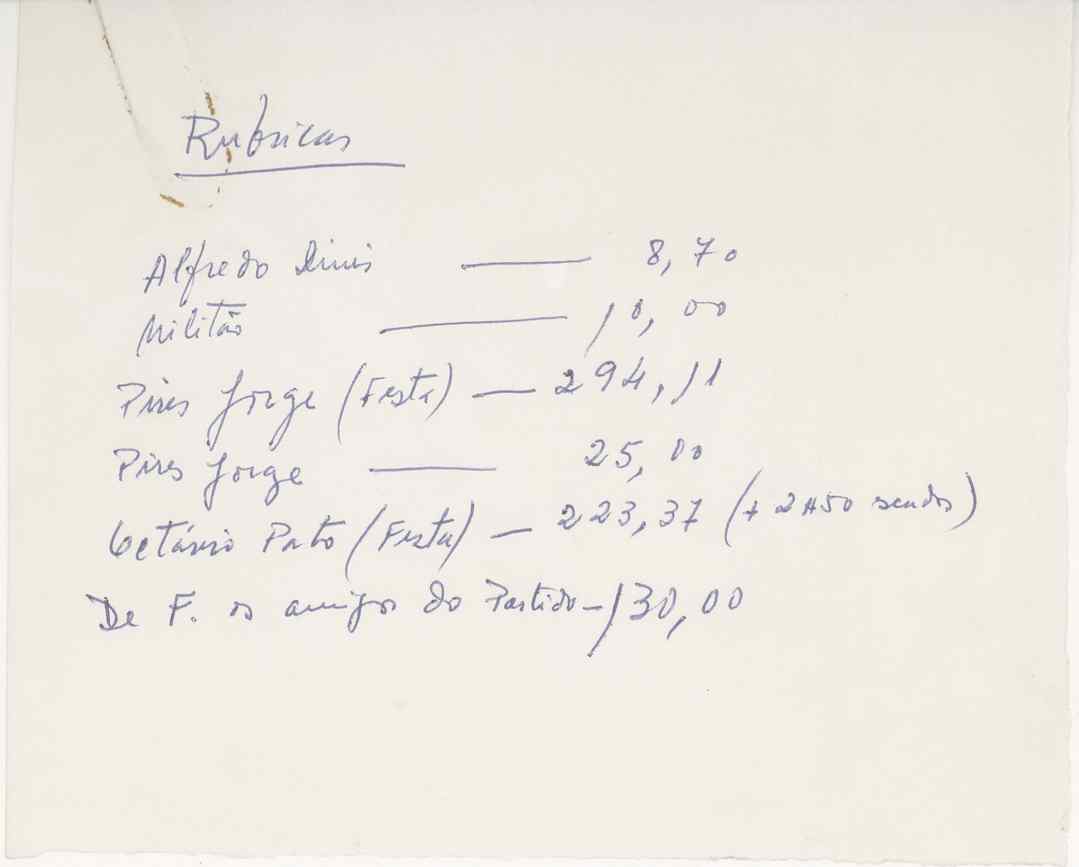 Rubricas
Alfredo Dinis — 8,70
Militão — 10,00
Pires Jorge (Festa) — 294,11
Pires Jorge — 25,00
Octávio Pato (Festa) — 223,37 (+ 2$50
De F. os amigos do Partido — 130,00